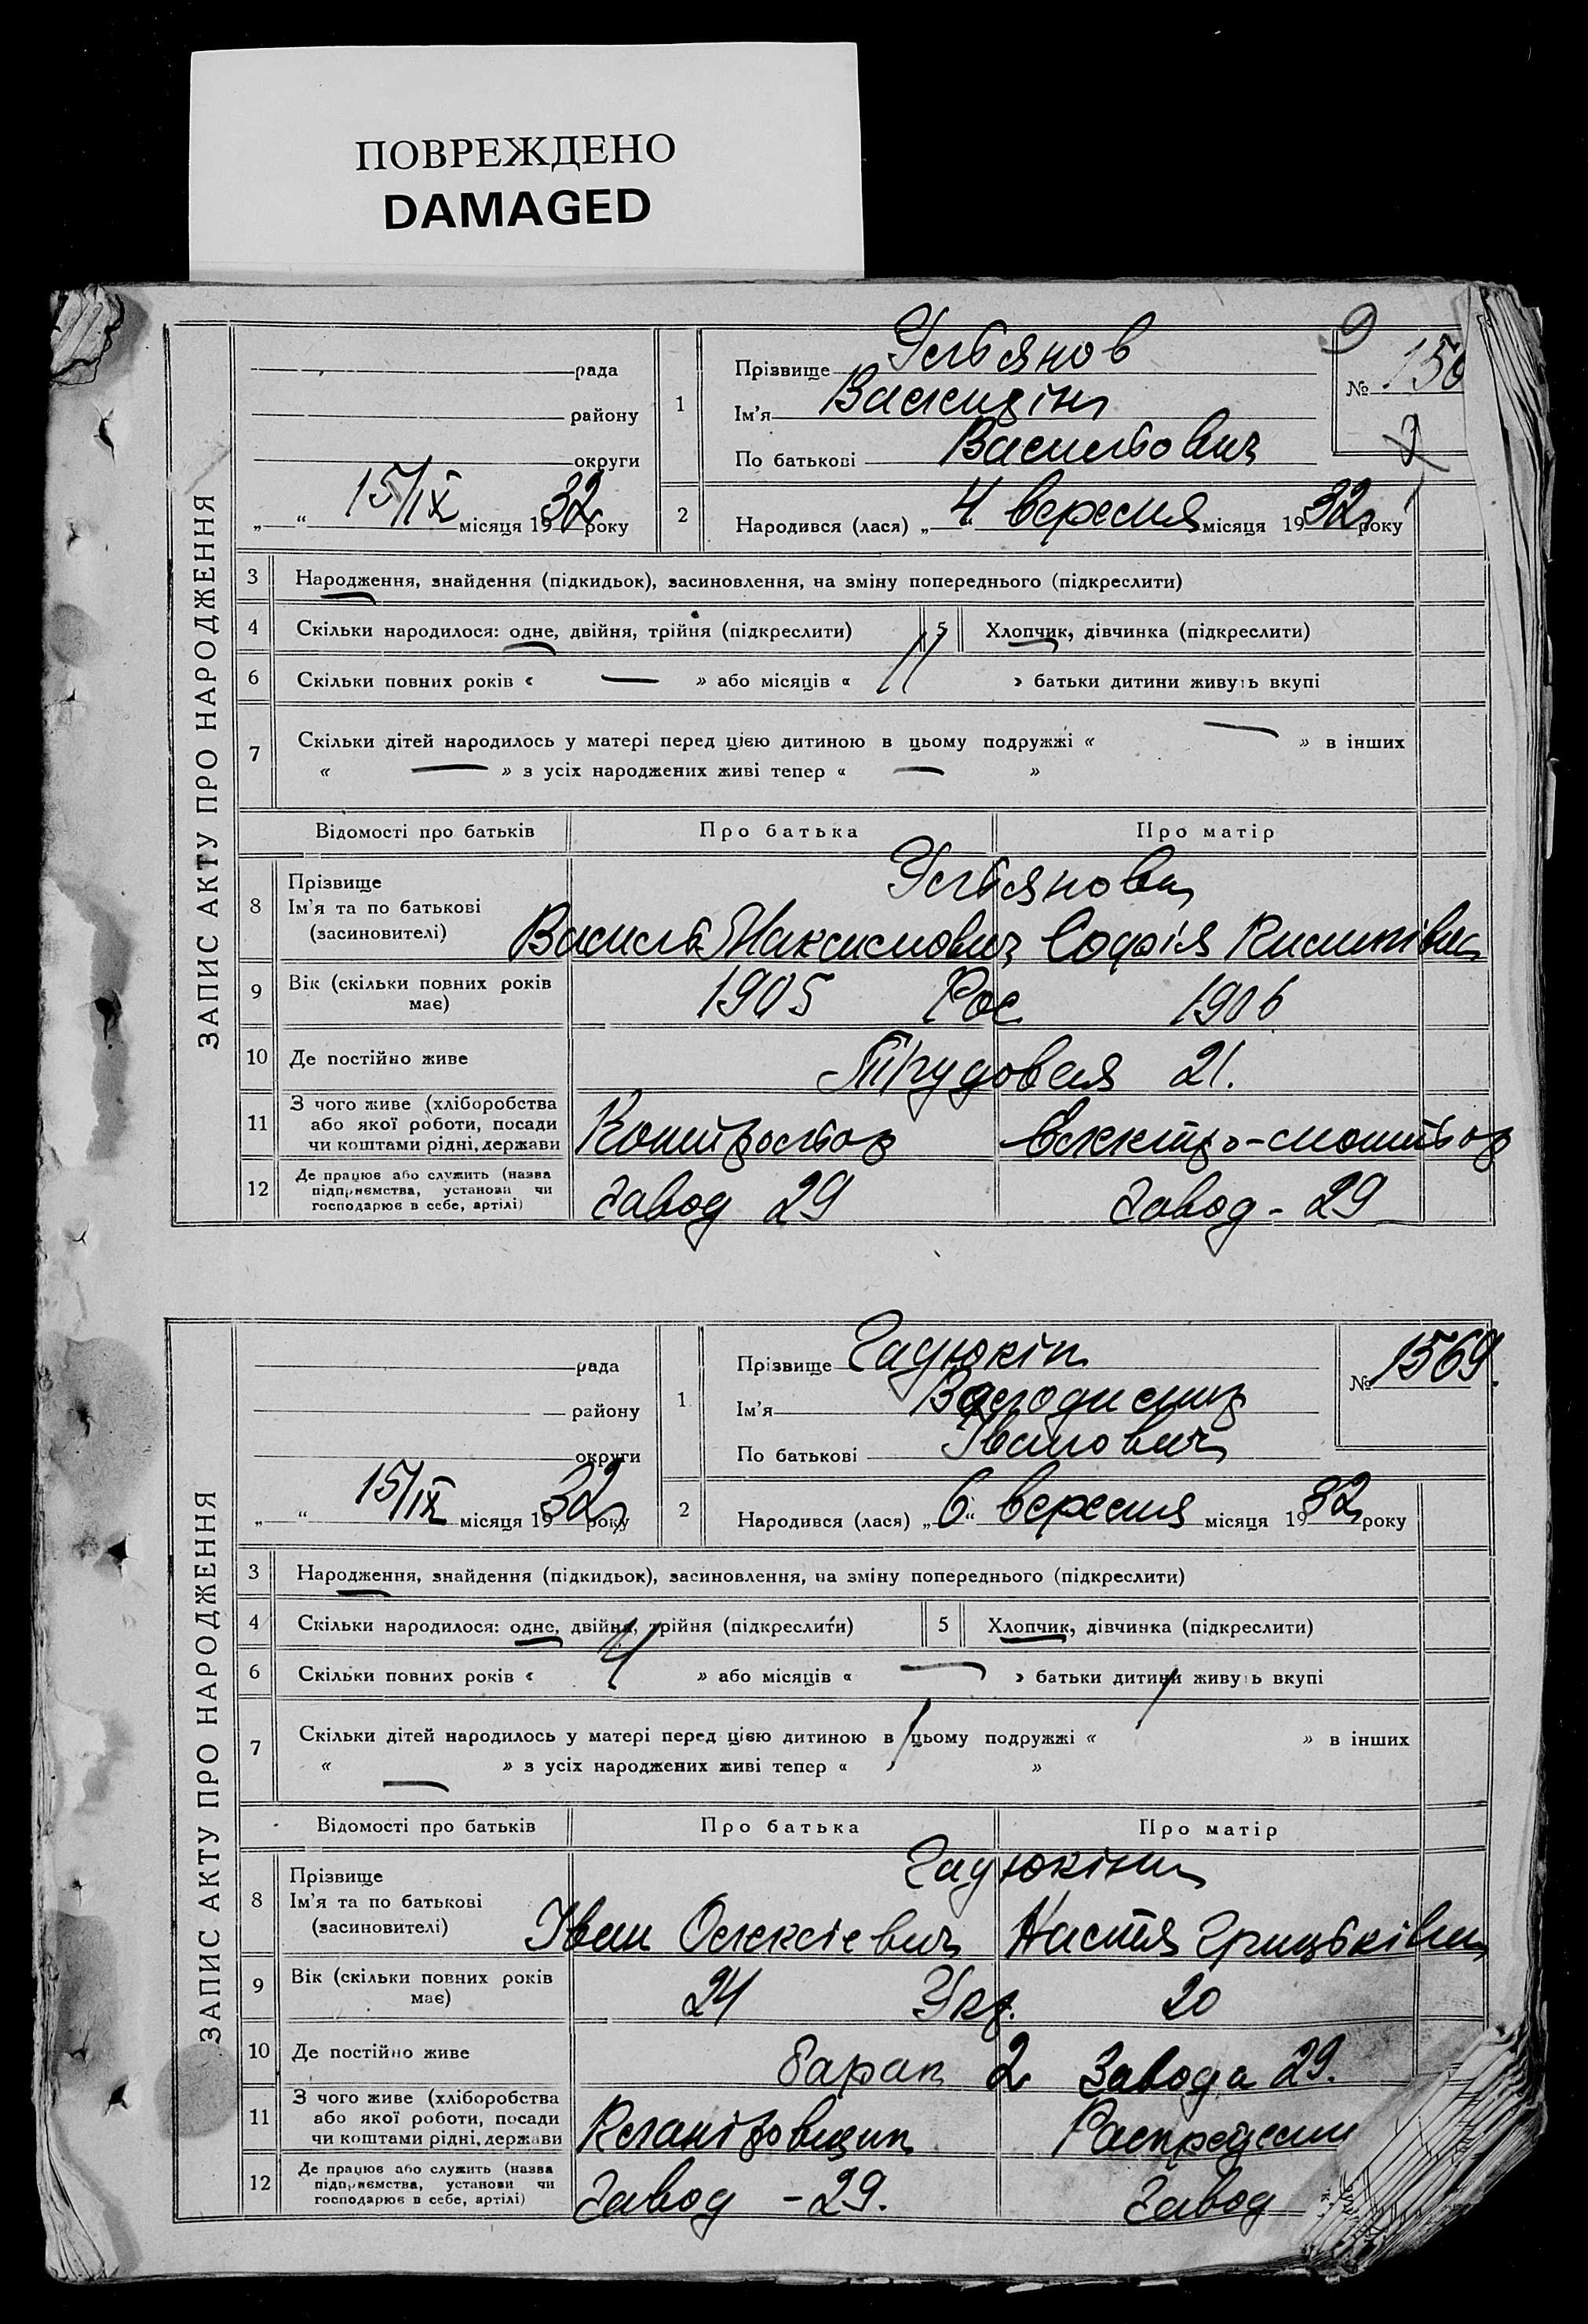 ПОВРЕЖДЕНО
DAMAGED
ЗАПИС АКТУ ПРО НАРОДЖЕННЯ
рада
району
округи
„ “ 15/IX місяця 1932 року
1
Прізвище Устянов
Ім’я
По батькові Васильович
№ 156
2
Народився (лася) „ 4 вересня місяця 1932 року
3 Народження, знайдення (підкидьок), засиновлення, на зміну попереднього (підкреслити)
4 Скільки народилося: одне, двійня, трійня (підкреслити) 5 Хлопчик, дівчинка (підкреслити)
6 Скільки повних років « — » або місяців « 11 » батьки дитини живуть вкупі
7 Скільки дітей народилось у матері перед цією дитиною в цьому подружжі « — » в інших
« — » з усіх народжених живі тепер « — »
Відомості про батьків Про батька Про матір
8 Прізвище
Ім’я та по батькові
(засиновителі)
Устянови
Василь Максимович Софія
9 Вік (скільки повних років має) 1905 Рос 1906
10 Де постійно живе Трудовая 21.
11 З чого живе (хліборобства
або якої роботи, посади
чи коштами рідні, держави
Контрольор Електро-монтьор
12 Де працює або служить (назва
підприємства, установи чи
господарює в себе, артілі)
Завод 29 Завод - 29
ЗАПИС АКТУ ПРО НАРОДЖЕННЯ
рада
району
округи
„ “ 15/IX місяця 1932 року
1
Прізвище Гадюкін
Ім’я Володимир
По батькові Іванович
№ 1569.
2
Народився (лася) „ 6 “ вересня місяця 1932 року
3 Народження, знайдення (підкидьок), засиновлення, на зміну попереднього (підкреслити)
4 Скільки народилося: одне, двійня, трійня (підкреслити) 5 Хлопчик, дівчинка (підкреслити)
6 Скільки повних років « 4 » або місяців « — » батьки дитини живуть вкупі
7 Скільки дітей народилось у матері перед цією дитиною в цьому подружжі « 1 » в інших
« — » з усіх народжених живі тепер « 1 »
Відомості про батьків Про батька Про матір
8 Прізвище
Ім’я та по батькові
(засиновителі)
Гадюкіни
Іван Олексієвич Настя Грицьківна
9 Вік (скільки повних років має) 24 Укр. 20
10 Де постійно живе барак 2 Завода 29.
11 З чого живе (хліборобства
або якої роботи, посади
чи коштами рідні, держави
12 Де працює або служить (назва
підприємства, установи чи
господарює в себе, артілі)
Завод - 29. Завод